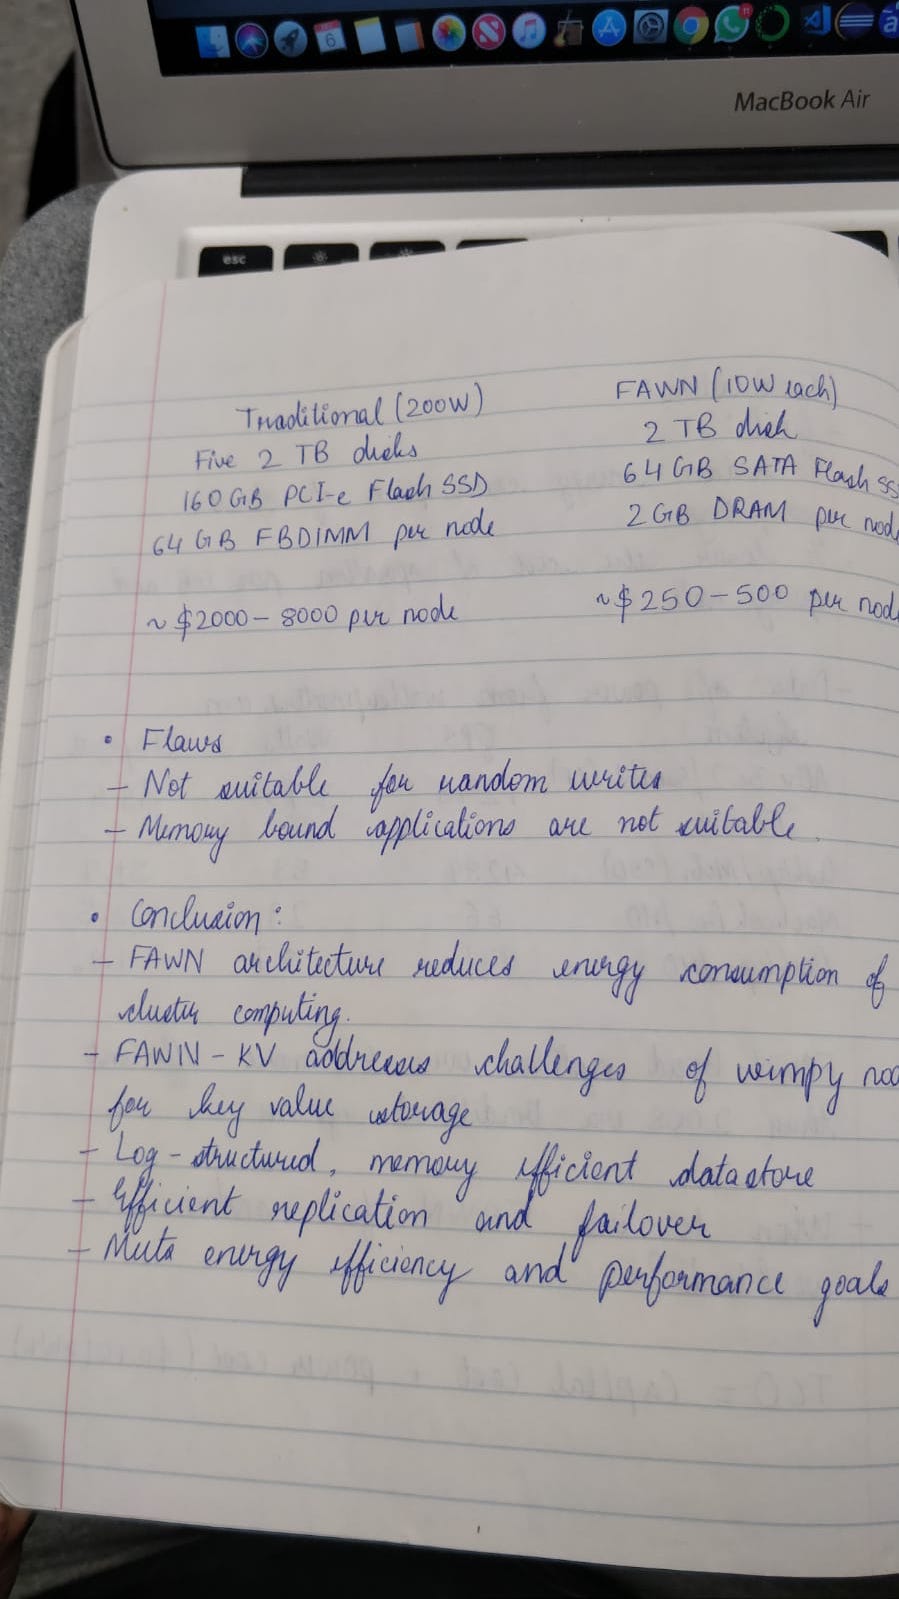 6
MacBook Air
esc
Traditional (200W)
Five 2 TB disks
160 GB PCI-e Flash SSD
64 GB FBDIMM per node
~ $2000 – 8000 per node
FAWN (10W each)
2 TB disk
64 GB SATA Flash SS
2 GB DRAM per nod
~ $250 – 500 per nod
• Flaws
– Not suitable for random writes
– Memory bound applications are not suitable.
• Conclusion :
– FAWN architecture reduces energy consumption of
cluster computing.
– FAWN – KV addresses challenges of wimpy no
for key value storage
– Log – structured, memory efficient datastore
– Efficient replication and failover
– Meets energy efficiency and performance goals